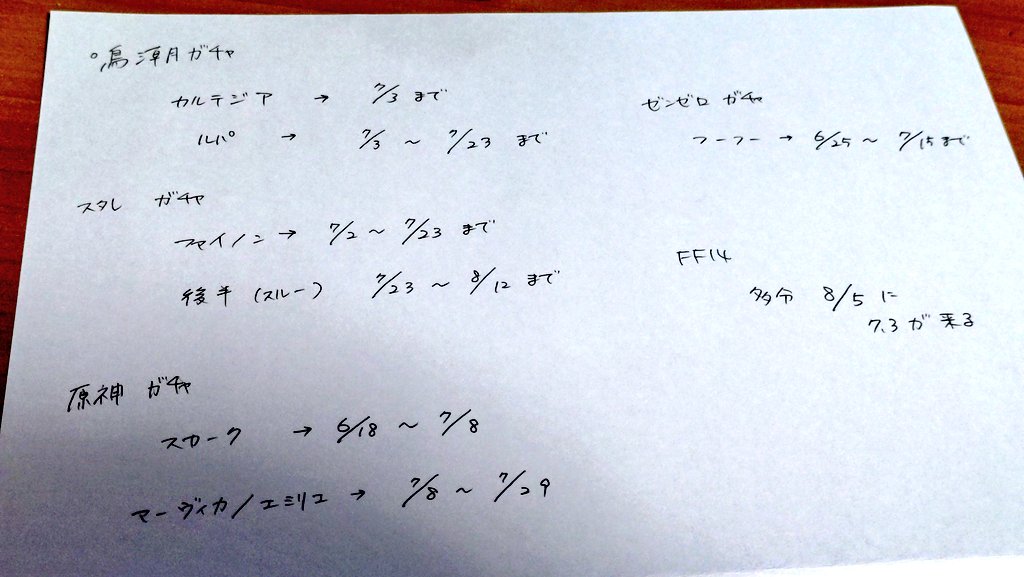 。鳴潮ガチャ
カルテジア → 7/3 まで
ルパ → 7/3 ～ 7/23 まで
スタレ ガチャ
ファイノン → 7/2 ～ 7/23 まで
後半 (スルー) 7/23 ～ 8/12 まで
原神 ガチャ
スカーク → 6/18 ～ 7/8
マーヴィカ/エミリエ → 7/8 ～ 7/29
ゼンゼロ ガチャ
フーフー → 6/25 ～ 7/15まで
FF14
多分 8/5 に
7.3 が 来る